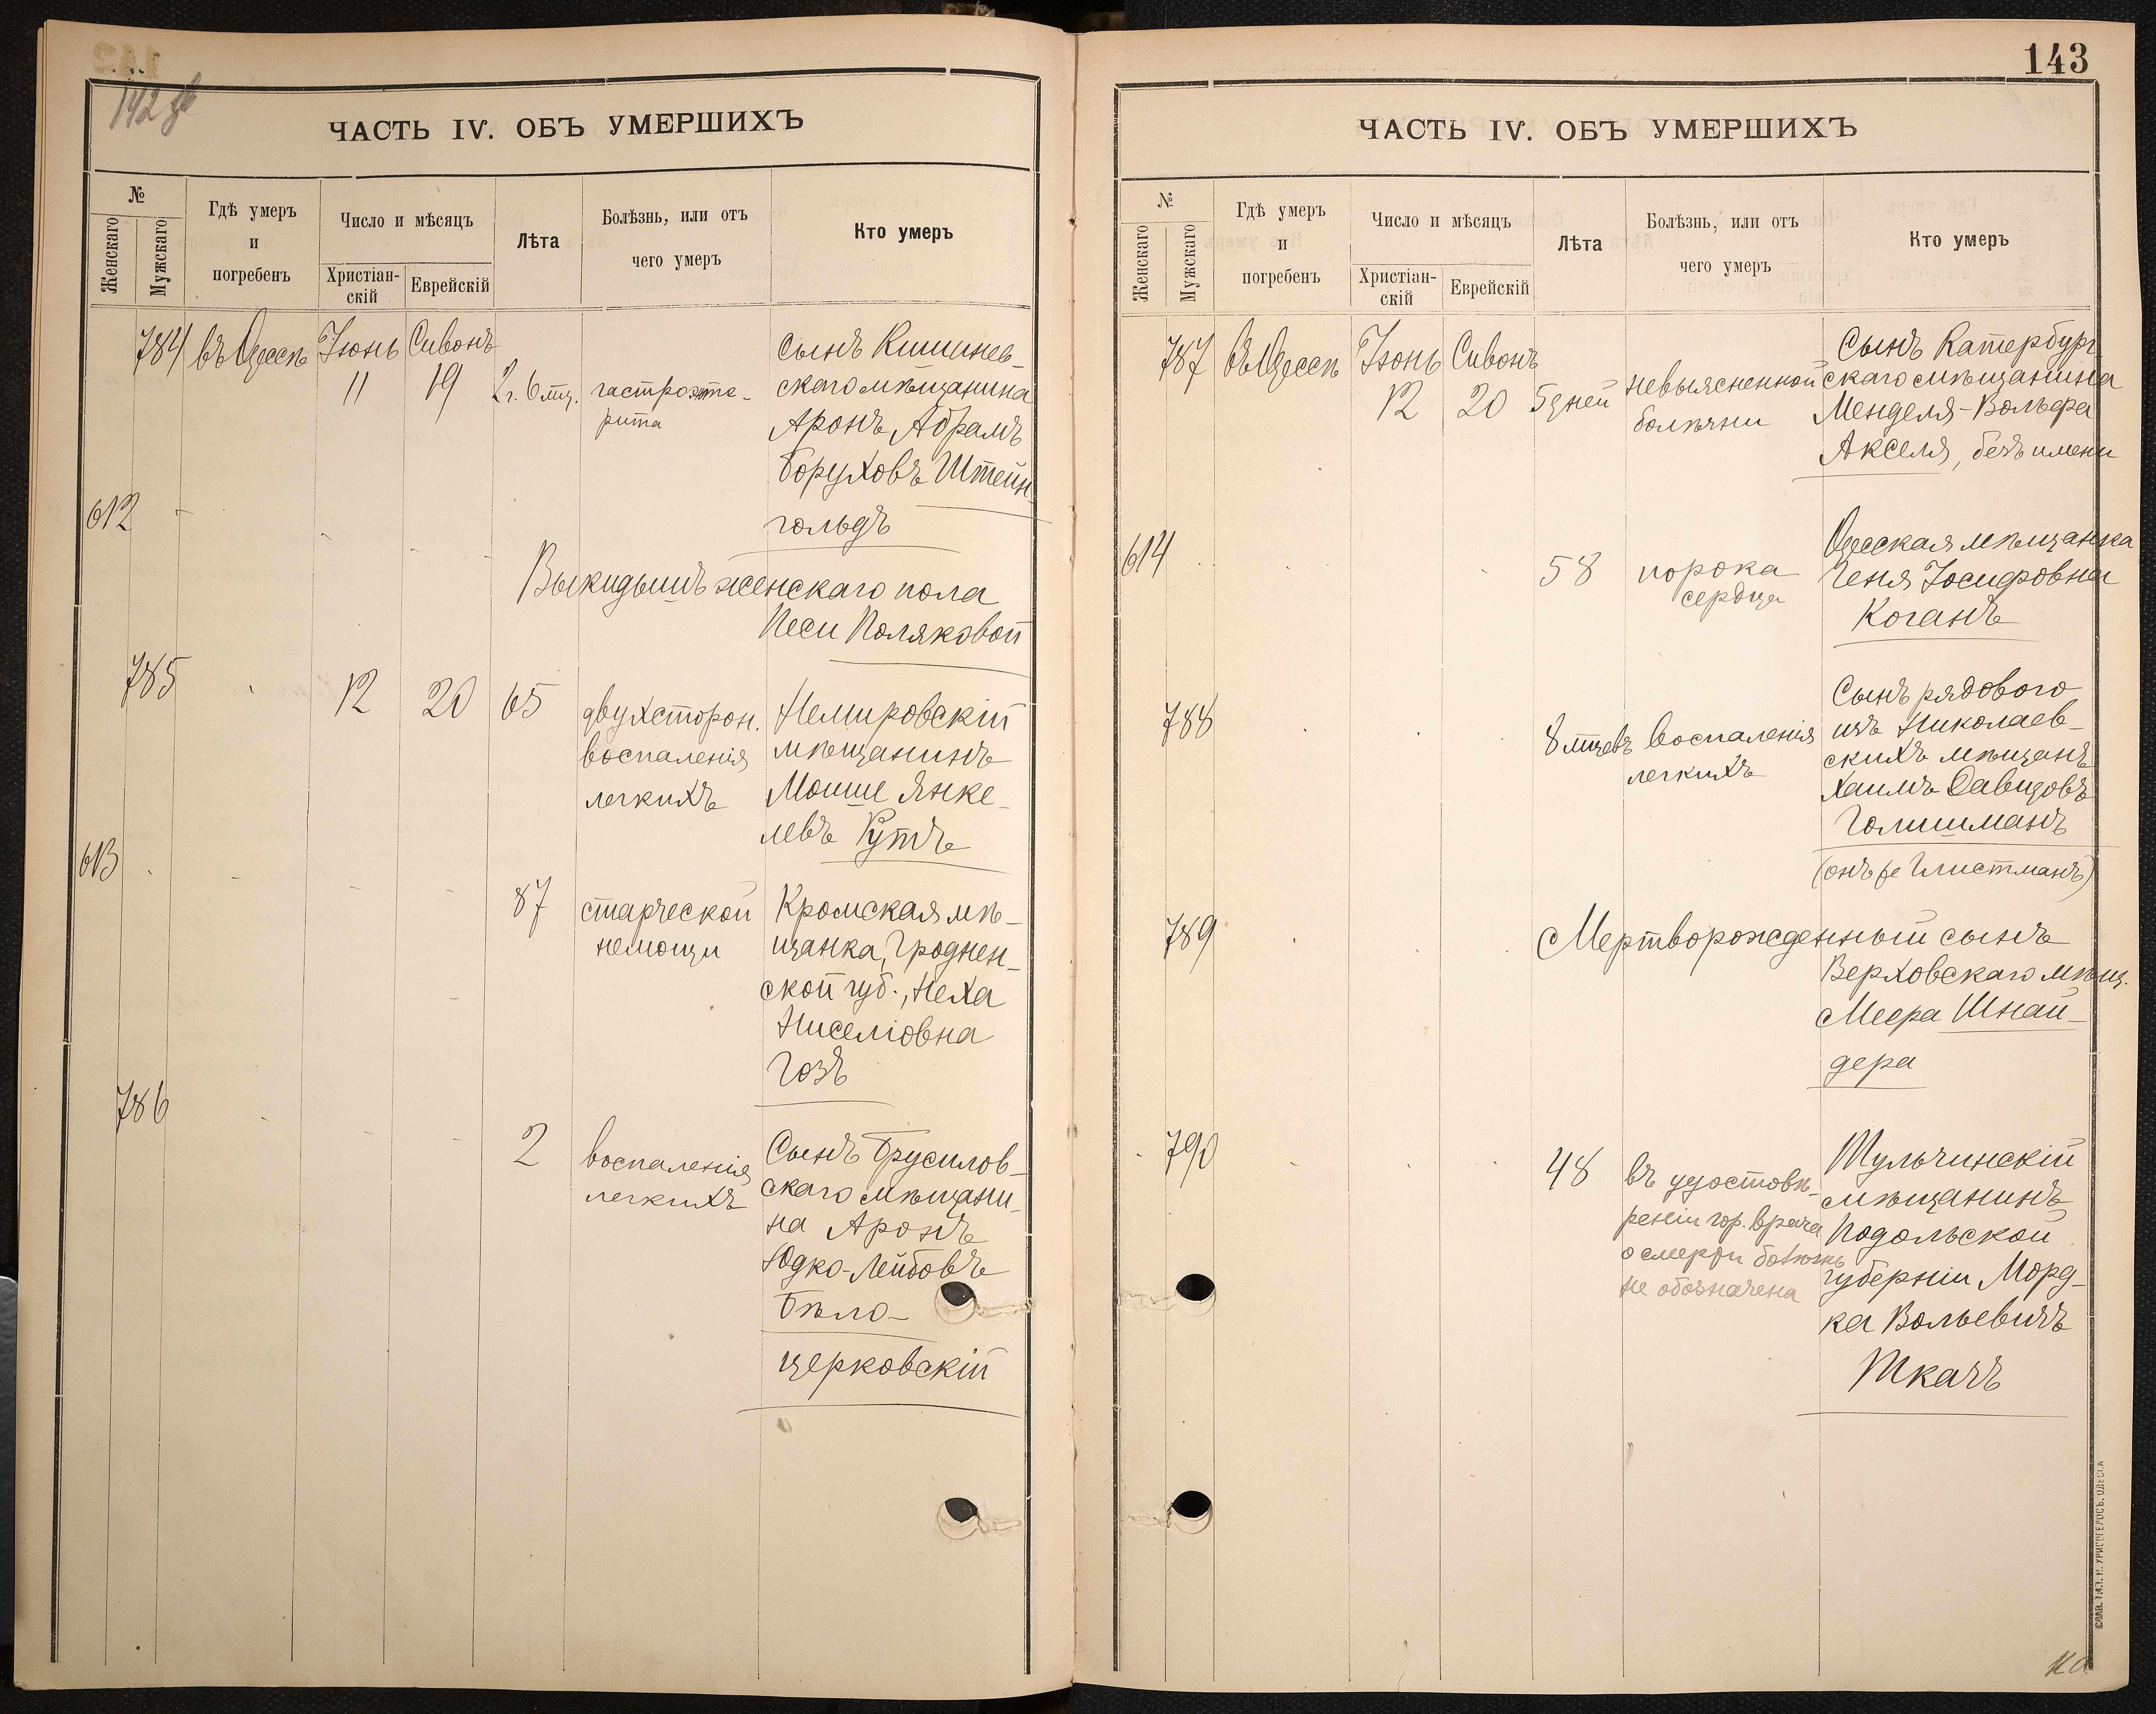 142 об
ЧАСТЬ IV. ОБЪ УМЕРШИХЪ
№
Женскаго
Мужскаго
Гдѣ умеръ
и
погребенъ
Число и мѣсяцъ
Христіан-
скій
Еврейскій
Лѣта
Болѣзнь, или отъ
чего умеръ
Кто умеръ
784 въ Одессѣ Іюнь Сивонъ
11 19 2 г. 6 мц.
гастроэнте-
рита
сынъ Кишинев-
скаго мѣщанина
Аронъ Абрамъ
Боруховъ Штейн-
гольдъ
612
Выкидышъ женскаго пола
Песи Поляковой
785 12 20 65
двухсторон.
воспаленія
легкихъ
Немировскій
мѣщанинъ
Моише Янке-
левъ Кутъ
613
87
старческой
немощи
Кромская мѣ-
щанка, Гроднен-
ской губ., Неха
Ниселіовна
Гозъ
786
2
воспаленія
легкихъ
Сынъ Брусилов-
скаго мѣщани-
на Аронъ
Юдко-Лейбовъ
Бѣло-
церковскій
143
ЧАСТЬ IV. ОБЪ УМЕРШИХЪ
№
Женскаго
Мужскаго
Гдѣ умеръ
и
погребенъ
Число и мѣсяцъ
Христіан-
скій
Еврейскій
Лѣта
Болѣзнь, или отъ
чего умеръ
Кто умеръ
787 въ Одессѣ Іюнь Сивонъ
12 20 5 дней
невыясненной
болѣзни
Сынъ Катербург-
скаго мѣщанина
Менделя-Вольфа
Акселя, безъ имени
614
58
порока
сердца
Одесская мѣщанка
Геня Іосифовна
Коганъ
788
8 мцевъ
воспаленія
легкихъ
Сынъ рядового
изъ Николаев-
скихъ мѣщанъ
Хаимъ Давидовъ
Голишманъ
(онъ же Глистманъ)
789
Мертворожденный сынъ
Верховскаго мѣщ.
Меера Шнай-
дера
790
48
въ удостовѣ-
реніи гор. врача
о смерти болѣзнь
не обозначена
Тульчинскій
мѣщанинъ
Подольской
губерніи Морд-
ка Вольевичъ
Ткачъ